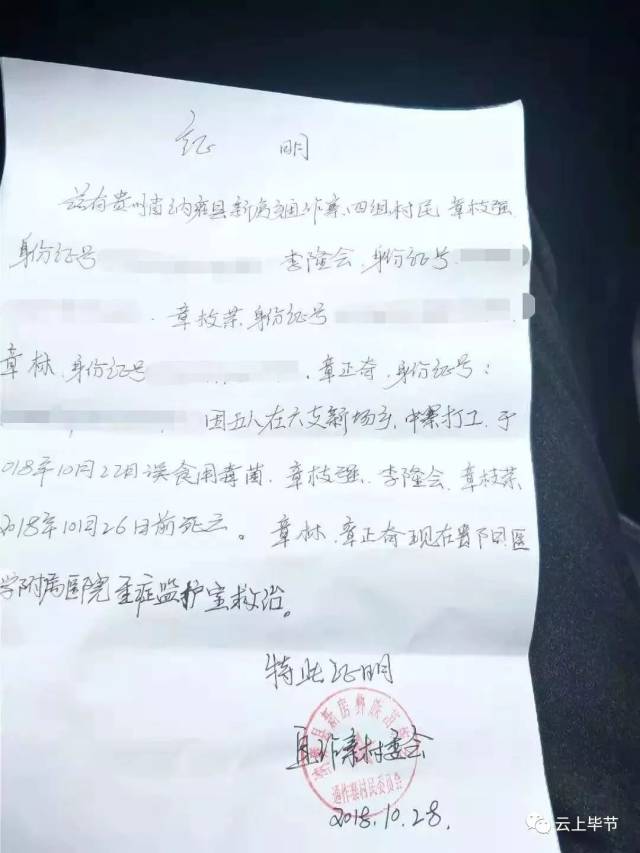 证 明
兹有贵州省纳雍县新房乡通作寨四组村民 章枝强
身份证号 李隆会、身份证号
、章枝荣、身份证号
章林、身份证号 、章正奇、身份证号:
因五人在六支新场乡、中寨打工、于
018年10月22日误食用毒菌、章枝强、李隆会、章枝荣
2018年10月26日前死亡。章林、章正奇现在贵阳医
学附属医院重症监护室救治。
特此证明
作寨村委会
通作寨村民委员会
2018.10.28.
云上毕节